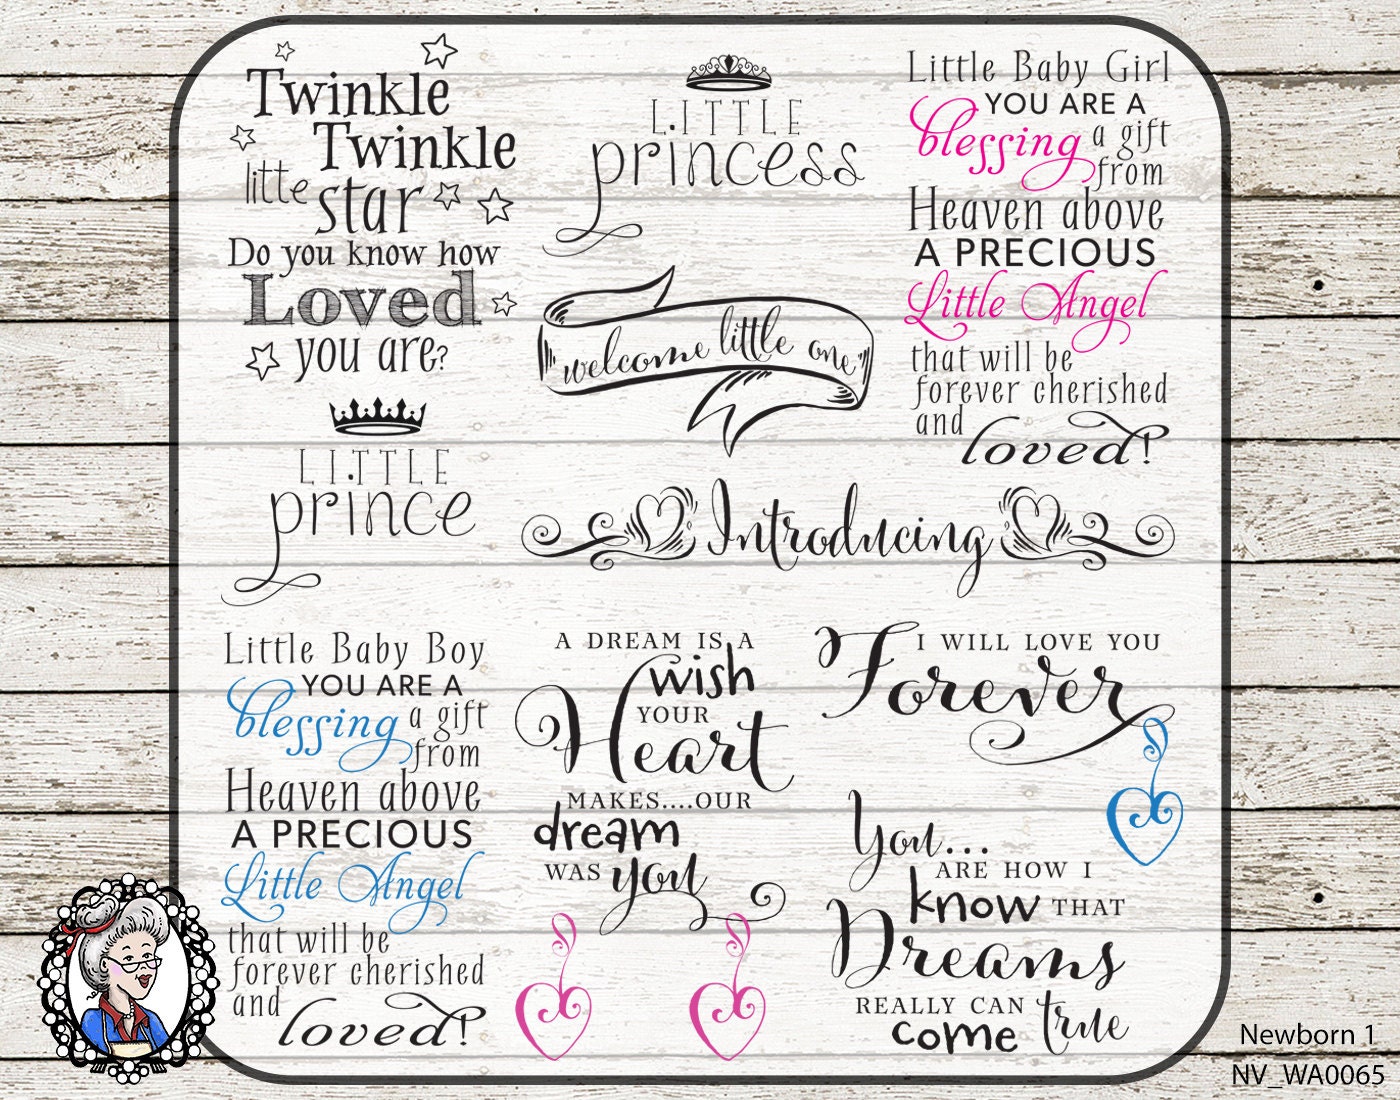 Twinkle
Twinkle
little star
Do you know how
Loved
you are?
LITTLE
princess
Little Baby Girl
YOU ARE A
blessing a gift
from
Heaven above
A PRECIOUS
Little Angel
that will be
forever cherished
and
loved!
welcome little one
LITTLE
prince
Introducing
Little Baby Boy
YOU ARE A
blessing a gift
from
Heaven above
A PRECIOUS
Little Angel
that will be
forever cherished
and
loved!
A DREAM IS A
wish
YOUR
Heart
MAKES....OUR
dream
WAS you
I WILL LOVE YOU
Forever
You...
ARE HOW I
know THAT
Dreams
REALLY CAN
come true
Newborn 1
NV_WA0065